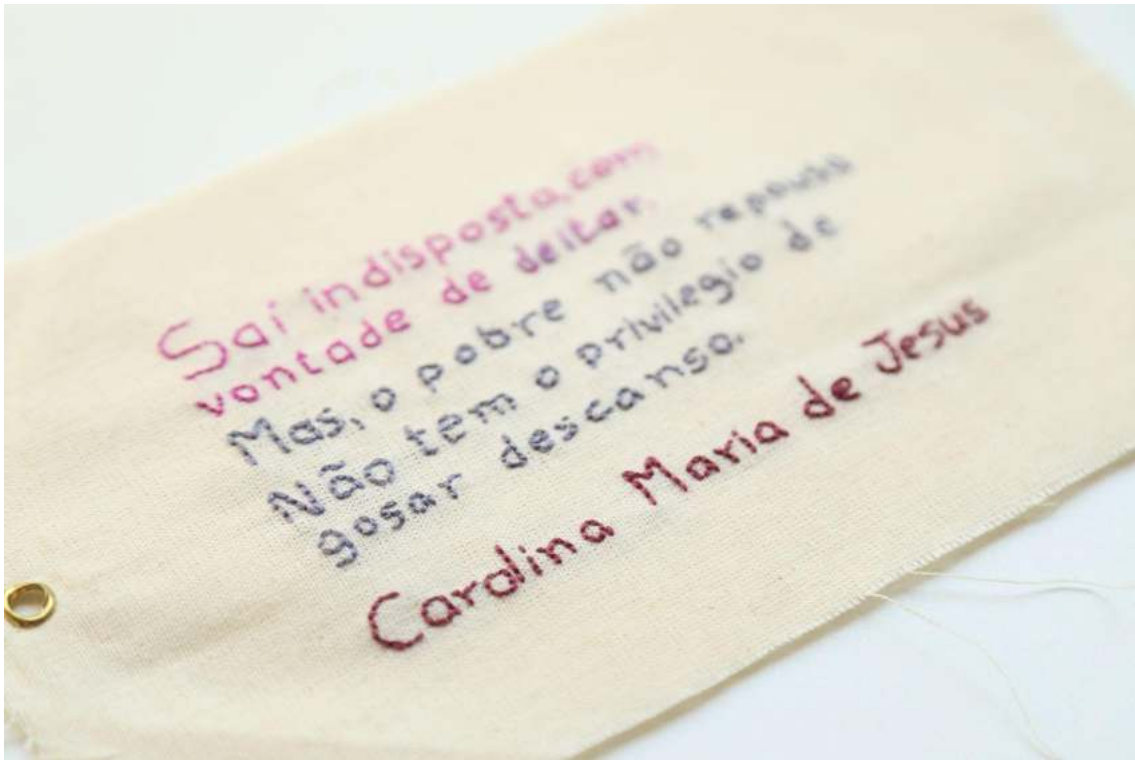 Sai indisposta, com
vontade de deitar.
Mas, o pobre não repousa
Não tem o privilegio de
gosar descanso.
Carolina Maria de Jesus